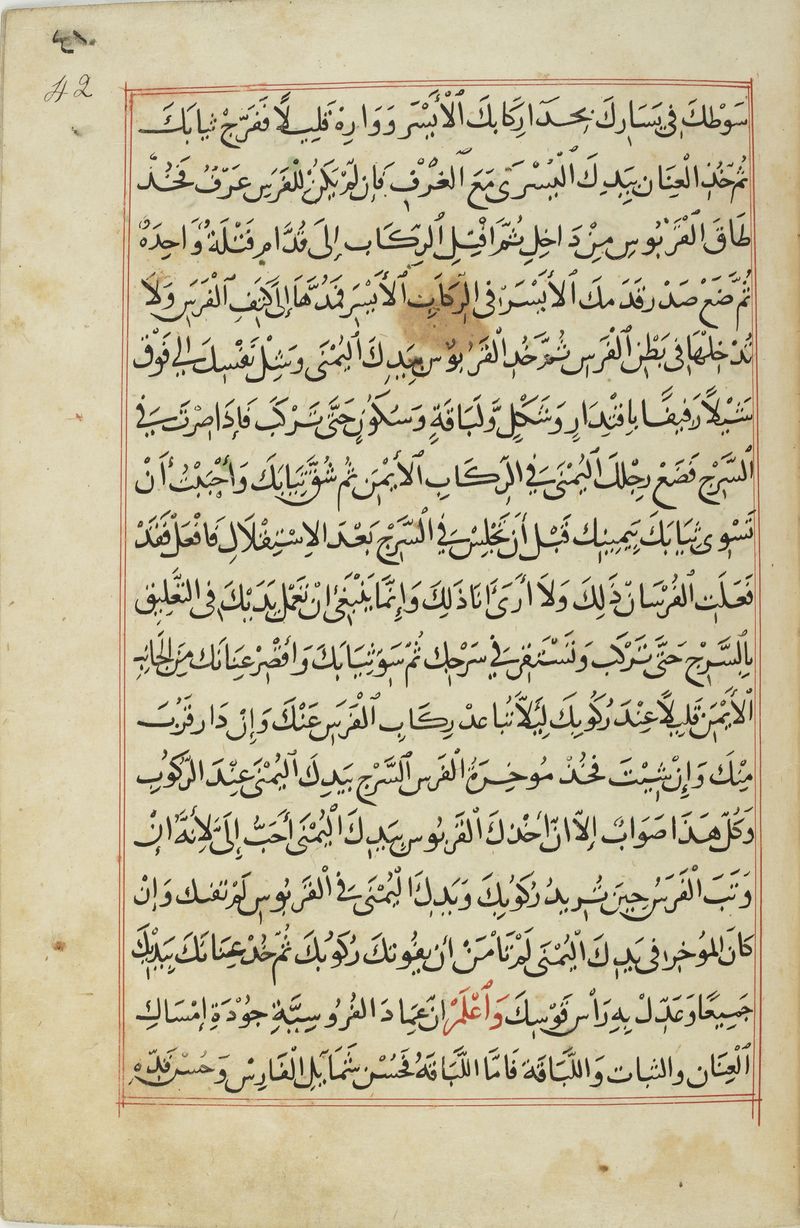 ٤١
42
سَوْطكَ فى يَسَارِكَ بحدَا رِكَابكَ ٱلْأَيْسَر وَوَارِهْ قَلِيلًا فَفَرّجْ ثيابكَ
ثُمّ خُذِ الْعِنَان بِيَدِكَ ٱلْيُسْرَى مَعَ ٱلعُرْفِ فَإن لَمْ يَكنْ لِلْفَرَسِ عَرْفٌ فَخُذْ
طَاقَ الْقَرَبُوسِ مِنْ دَاخِلٍ ثُمَّ افْتِلِ ٱلرِّكَاب إلَى قُدَّامٍ فَتْلَةً وَاحِدَةً
ثُمّ ضَعْ صَدْرقَدَمكَ ٱلأَيْسَرَ فى الرّكَابِ ٱلأَيْسَر فَمُدَّهَا إلَى كتِفِ ٱلْفَرَس وَلَا
تُدْخِلْهَا فى بَطْنِ ٱلْفَرَسِ ثُمَّ خُذِ الْقَرَبُوس بِيَدِكَ ٱليُمْنَى وَشِلْ نَفْسكَ إلى فَوْق
شَيْلًا رَفِيقًا بِاقْتِدَارٍ وَشَكْلٍ وَلَبَاقَةٍ وَسُكوُنٍ حَتَّى تَرْكَبَ فَإِذَا صِرْتَ فى
ٱلسَّرْجِ فَضَعْ رِجلكَ ٱليُمْنَى فى الرِّكَابِ ٱلأيْمَنِ ثُم شُقَّ ثِيَابَكَ وَأحْبَبْتُ أَنْ
تَسْوِى ثِيَابَكَ بِيَمِينِك قَبْل أَن تَجْلِسْ فى ٱلسَّرْجِ بَعْدَ الاِسْتِقْلَالِ فَافْعَلْ فَقَدْ
فَعَلَتِ ٱلفُرْسَان ذَلِكَ وَلَا أَرَىَ أَنَا ذَلِكَ وَإِنَّمَا يَنْبَغِىْ انْ تَعْمَل يَدَيْكَ فى التَّعْلِيقِ
بِالسَّرْجِ حَتَّى تَرْكَب وَتَسْتَقِرّ فى سَرْجِك ثُمّ سَوّ ثِيَابَكَ وَاقْصُرْ عِنَانَك مِنَ الجَانِبِ
ٱلأَيْمَنِ قَلِيلًا عِنْدَ رُكُوبِكَ لِئَلَّا تُباعدْ رِكَابِ ٱلْفَرَسِ عَنْكَ وَإِنْ دَار قَرُبَ
مِنْكَ وَإِنْ شِيْتَ فَخُذْ مُوخِرَةُ الْفَرس ٱلسَّرْجِ بَيدِكَ ٱليُمْنَى عِنْدَ الرّكُوبِ
وَكُلّ هَذَا صَوَابٌ إلاّ انّ أَخْذكَ ٱلقَرَبُوس بِيَدِكَ ٱلْيُمْنَى أحَبُّ إِلَىَّ لِأنَّهُ انْ
وَثَبَ الْفَرَسُ حِينَ تُرِيدُ رُكُوبِكَ وَيَدِكَ اليُمْنَى فى الْقَرَبُوسِ لَمْ تفتك وَانْ
كَانَ المُوخر فى يَدِكَ اليُمْنَى لَمْ تَأمَنْ أنْ يفُوتكَ رُكُوبكَ ثُمّ خُذْ عِنَانَكَ بِيَدَيْكَ
جَمِيعًا وَعَدّلْ بِهِ رَأْس قوْسِكَ وَٱعْلَمْ انّ عِمَادَ الفُرُوسِيَّةِ جوْدَةِ إمْسَاكِ
ٱلْعِنَان والثبات وَاللَّبَاقَة فَامَّا اللَّبَاقَةُ فَحُسْن شَمَايلِ الْفَارِسْ وَحُسْن قدّهِ